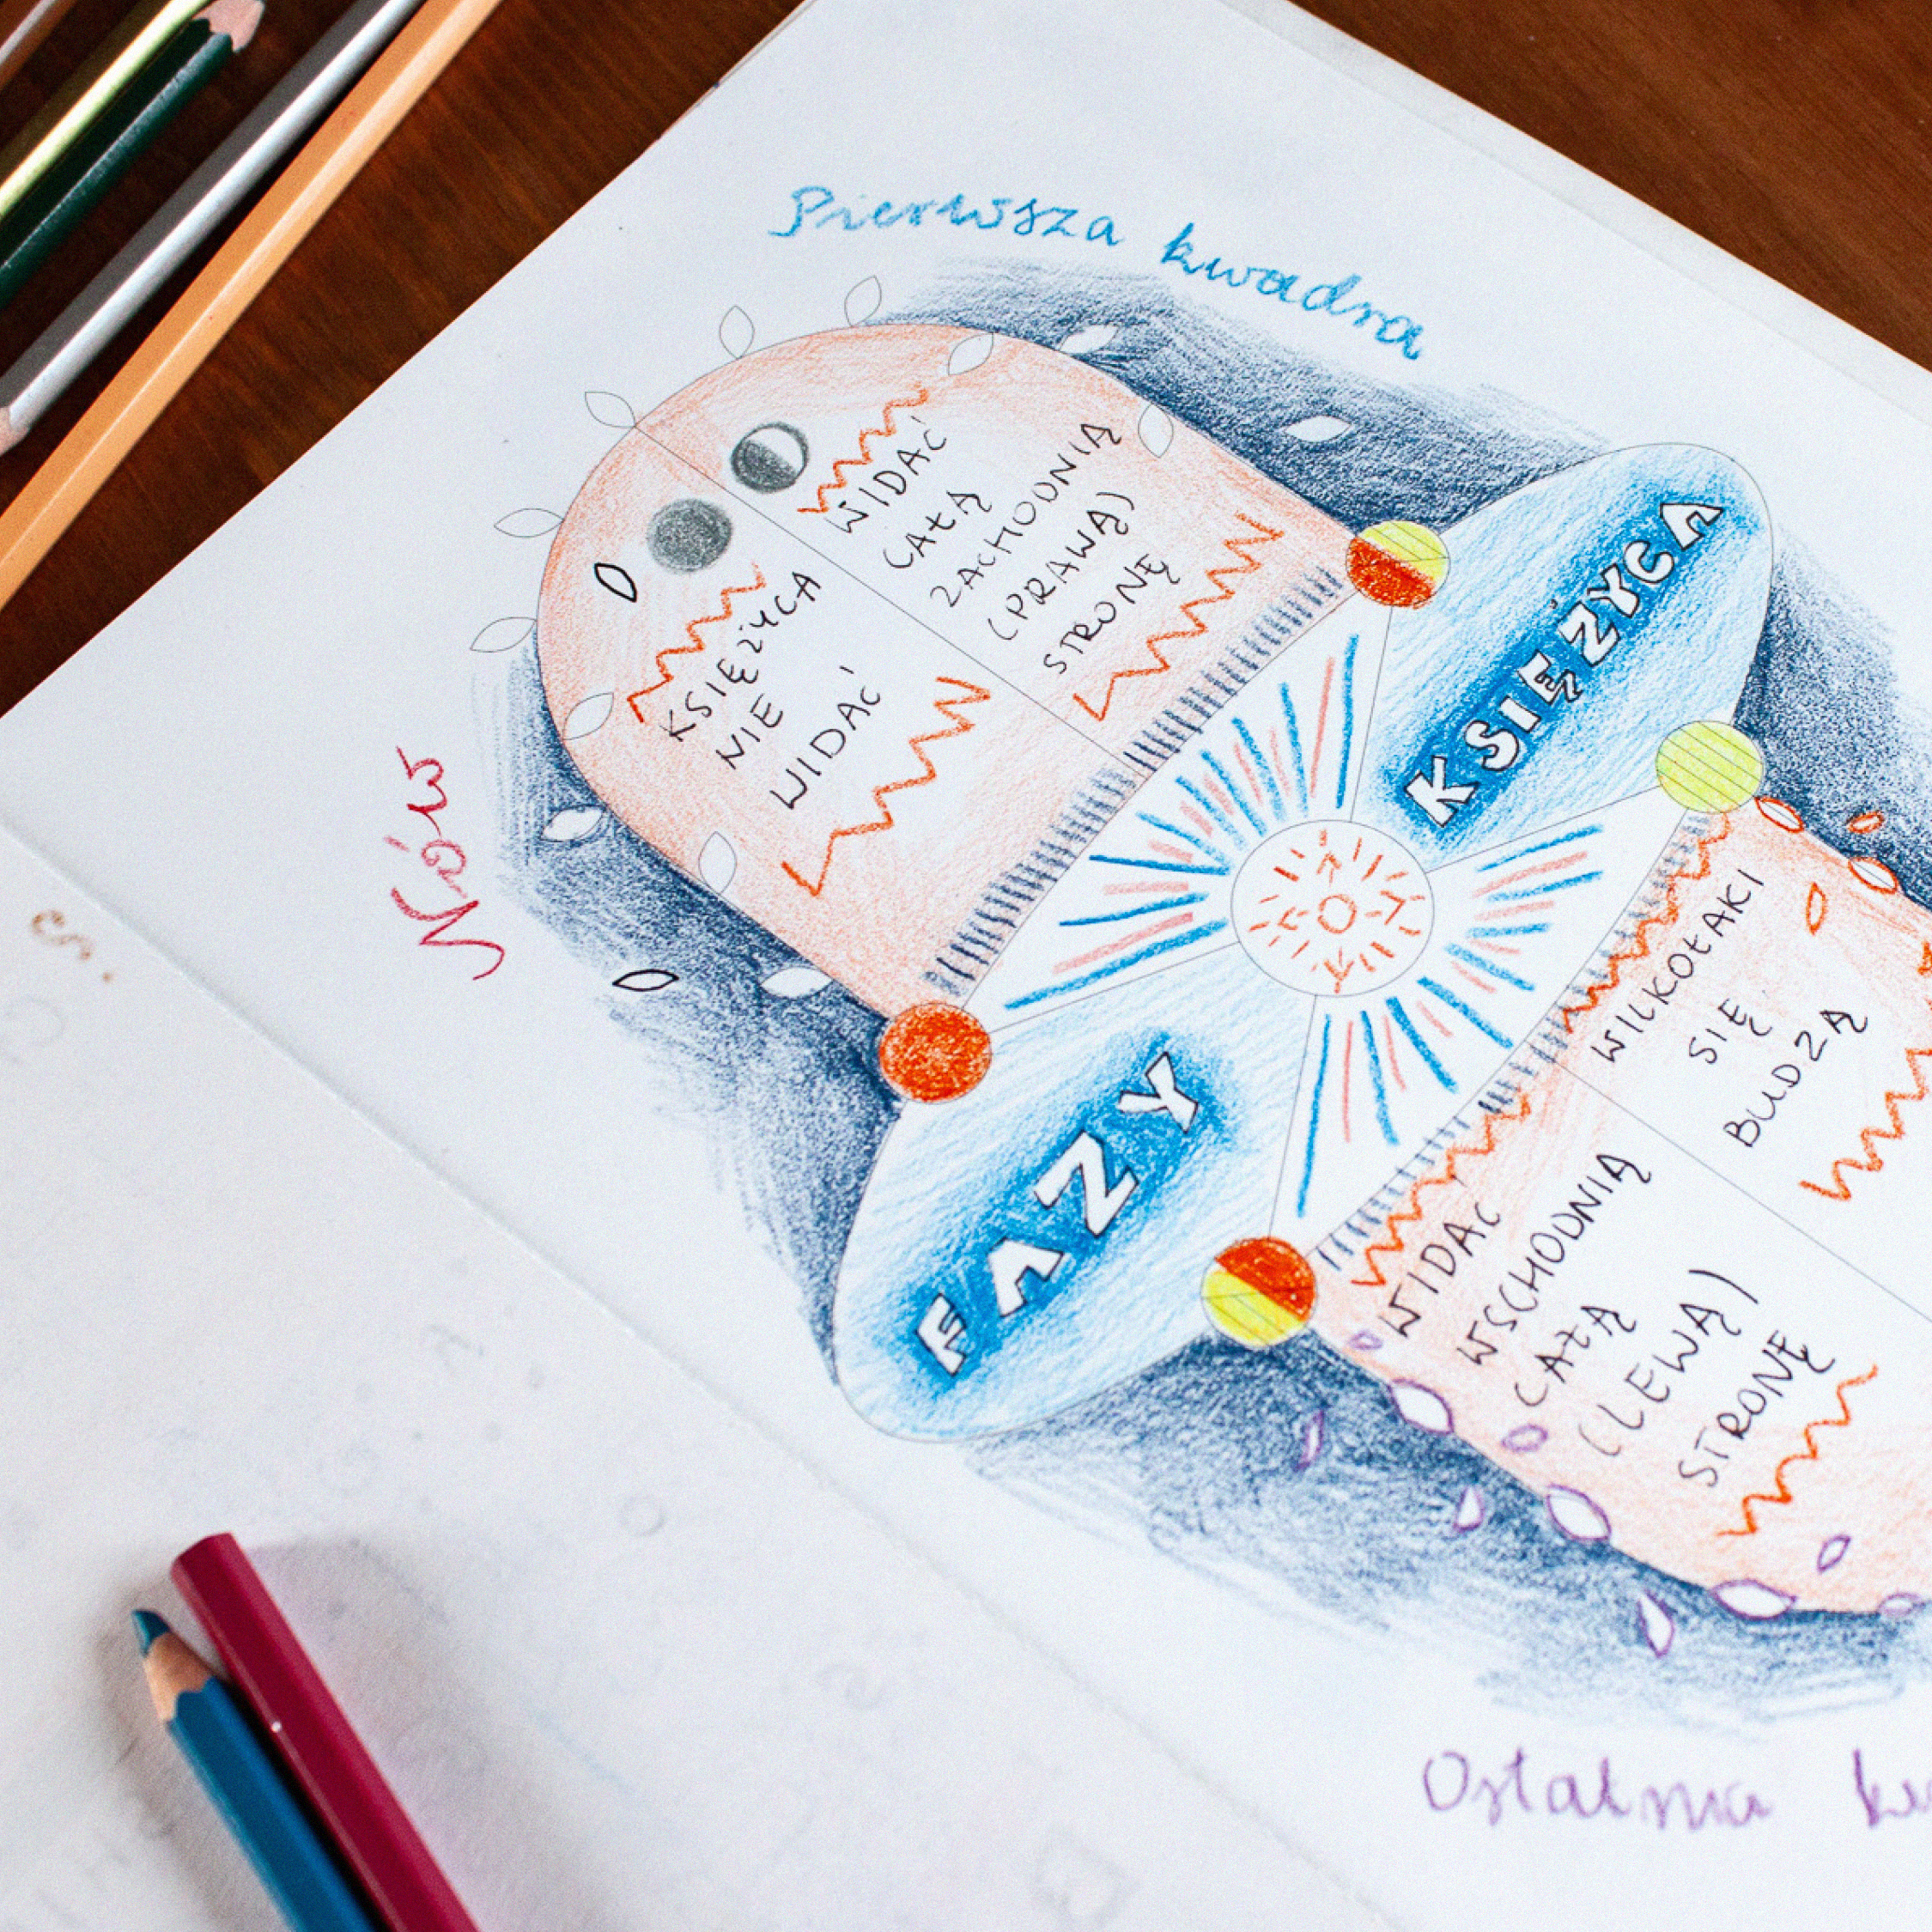 Pierwsza kwadra
Nów
KSIĘŻYCA
NIE
WIDAĆ
WIDAĆ
CAŁĄ
ZACHODNIĄ
(PRAWĄ)
STRONĘ
FAZY
KSIĘŻYCA
WILKOŁAKI
SIĘ
BUDZĄ
WIDAĆ
WSCHODNIĄ
CAŁĄ
(LEWĄ)
STRONĘ
Ostatnia